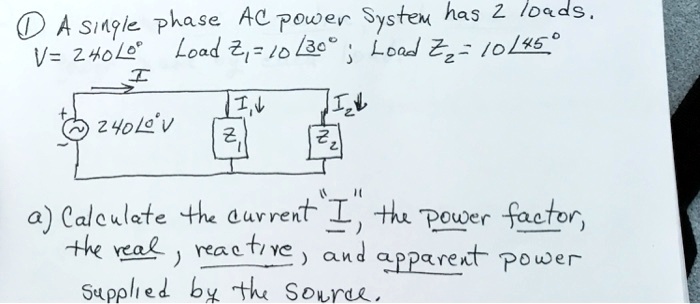 ① A single phase AC power System has 2 loads.
V= 240∠0° Load Z₁=10∠30° ; Load Z₂= 10∠45°
I
+ 240∠0°V I₁↓ I₂↓
- Z₁ Z₂
a) Calculate the current "I", the power factor,
the real, reactive, and apparent power
Supplied by the Source.